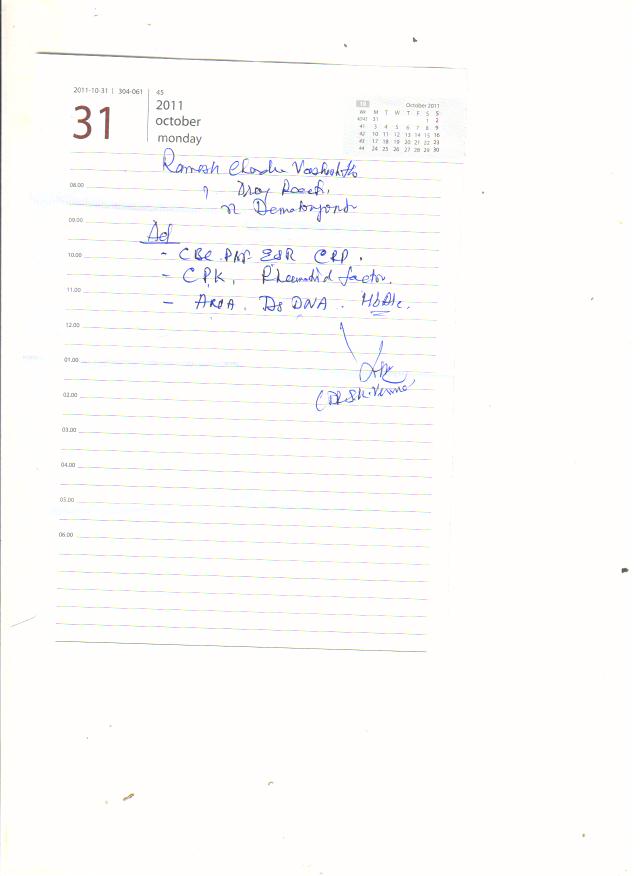 2011-10-31 | 304-061 45
31
2011
october
monday
10 October 2011
Wk M T W T F S S
40/45 31 1 2
41 3 4 5 6 7 8 9
42 10 11 12 13 14 15 16
43 17 18 19 20 21 22 23
44 24 25 26 27 28 29 30
Ramesh
08.00
? Drug
09.00
Ad
10.00
- CBC. ESR CRP.
- CPK. Rheumatoid factor.
11.00
- DS DNA. HbA1c.
12.00
01.00
(Dr. S.K. Verma
02.00
03.00
04.00
05.00
06.00